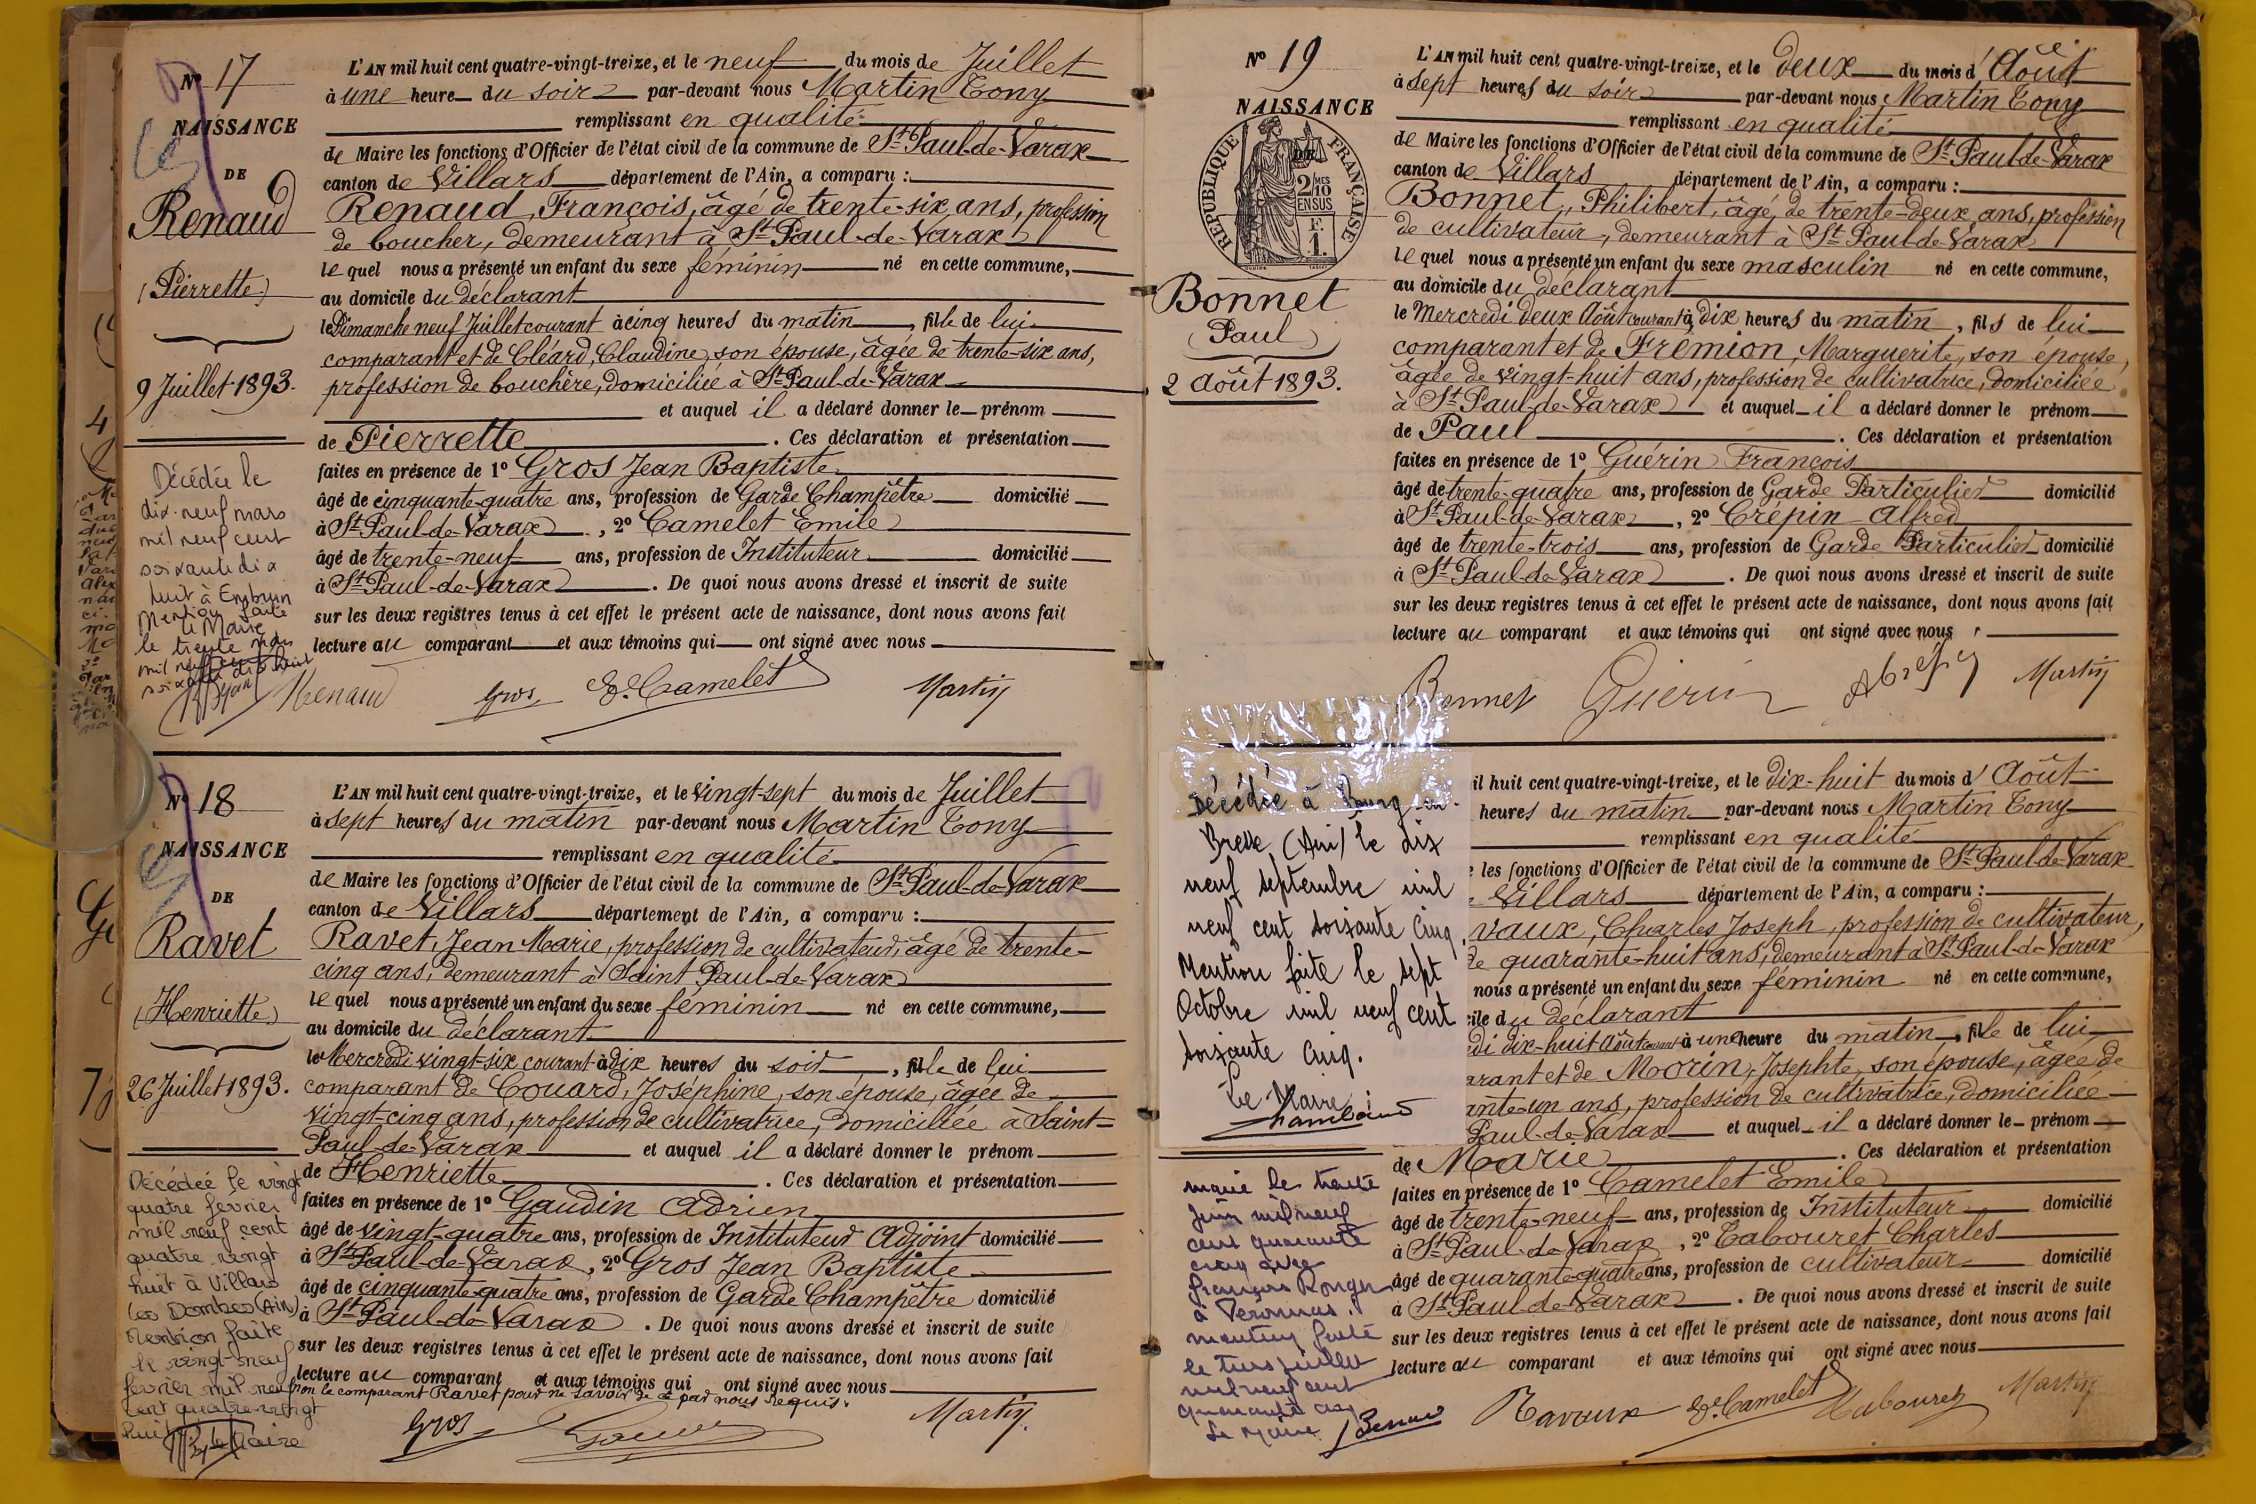 Nº 17
NAISSANCE
DE
Renaud
(Pierrette)
9 Juillet 1893.
Décédée le
dix-neuf mars
mil neuf cent
soixante dix
huit à Embrun
Mention faite
le Maire
le trente mars
mil neuf cent
soixante dix huit
L'AN mil huit cent quatre-vingt-treize, et le neuf du mois de Juillet
à une heure du soir par-devant nous Martin Tony
remplissant en qualité
de Maire les fonctions d'Officier de l'état civil de la commune de St Paul-de-Varax
canton de Villars département de l'Ain, a comparu :
Renaud, François, âgé de trente-six ans, profession
de boucher, demeurant à St Paul-de-Varax
le quel nous a présenté un enfant du sexe féminin né en cette commune,
au domicile du déclarant
le Dimanche neuf Juillet courant à cinq heures du matin, fille de lui
comparant et de Cléard, Claudine, son épouse, âgée de trente-six ans,
profession de bouchère, domiciliée à St Paul-de-Varax
et auquel il a déclaré donner le prénom
de Pierrette. Ces déclaration et présentation
faites en présence de 1º Gros Jean Baptiste
âgé de cinquante-quatre ans, profession de Garde Champêtre domicilié
à St Paul-de-Varax, 2º Camelet Emile
âgé de trente-neuf ans, profession de Instituteur domicilié
à St Paul-de-Varax. De quoi nous avons dressé et inscrit de suite
sur les deux registres tenus à cet effet le présent acte de naissance, dont nous avons fait
lecture au comparant et aux témoins qui ont signé avec nous
Renaud Gros E. Camelet Martin
Nº 18
NAISSANCE
DE
Ravet
(Henriette)
26 Juillet 1893.
Décédée le vingt
quatre février
mil neuf cent
quatre vingt
huit à Villars
les Dombes (Ain)
Mention faite
le vingt-neuf
février mil neuf
cent quatre-vingt
huit
Le Maire
L'AN mil huit cent quatre-vingt-treize, et le vingt-sept du mois de Juillet
à sept heures du matin par-devant nous Martin Tony
remplissant en qualité
de Maire les fonctions d'Officier de l'état civil de la commune de St Paul-de-Varax
canton de Villars département de l'Ain, a comparu :
Ravet, Jean Marie, profession de cultivateur, âgé de trente-
cinq ans, demeurant à Saint Paul-de-Varax
le quel nous a présenté un enfant du sexe féminin né en cette commune,
au domicile du déclarant
le Mercredi vingt-six courant à dix heures du soir, fille de lui
comparant de Couard, Joséphine, son épouse, âgée de
vingt-cinq ans, profession de cultivatrice, domiciliée à Saint-
Paul-de-Varax et auquel il a déclaré donner le prénom
de Henriette. Ces déclaration et présentation
faites en présence de 1º Gaudin Adrien
âgé de vingt-quatre ans, profession de Instituteur Adjoint domicilié
à St Paul-de-Varax, 2º Gros Jean Baptiste
âgé de cinquante-quatre ans, profession de Garde Champêtre domicilié
à St Paul-de-Varax. De quoi nous avons dressé et inscrit de suite
sur les deux registres tenus à cet effet le présent acte de naissance, dont nous avons fait
lecture au comparant et aux témoins qui ont signé avec nous
non le comparant Ravet pour ne savoir de ce par nous requis.
Gros Martin
Nº 19
NAISSANCE
DE
RÉPUBLIQUE FRANÇAISE
2/10 MES
EN SUS
F.
1.
Bonnet
(Paul)
2 Août 1893.
L'AN mil huit cent quatre-vingt-treize, et le deux du mois d'Août
à sept heures du soir par-devant nous Martin Tony
remplissant en qualité
de Maire les fonctions d'Officier de l'état civil de la commune de St Paul-de-Varax
canton de Villars département de l'Ain, a comparu :
Bonnet, Philibert, âgé de trente-deux ans, profession
de cultivateur, demeurant à St Paul-de-Varax
le quel nous a présenté un enfant du sexe masculin né en cette commune,
au domicile du déclarant
le Mercredi deux Août courant à dix heures du matin, fils de lui
comparant et de Frémion, Marguerite, son épouse,
âgée de vingt-huit ans, profession de cultivatrice, domiciliée
à St Paul-de-Varax et auquel il a déclaré donner le prénom
de Paul. Ces déclaration et présentation
faites en présence de 1º Guérin François
âgé de trente-quatre ans, profession de Garde Particulier domicilié
à St Paul-de-Varax, 2º Crépin Alfred
âgé de trente-trois ans, profession de Garde Particulier domicilié
à St Paul-de-Varax. De quoi nous avons dressé et inscrit de suite
sur les deux registres tenus à cet effet le présent acte de naissance, dont nous avons fait
lecture au comparant et aux témoins qui ont signé avec nous
Bonnet Guérin Martin
Décédée à Bourg-en-
Bresse (Ain) le dix
neuf septembre mil
neuf cent soixante cinq.
Mention faite le sept
Octobre mil neuf cent
soixante cinq.
Le Maire
marié le trente
juin mil neuf
cent quarante
cinq avec
françois
à Péronnas.
mention faite
le trois juillet
mil neuf cent
quarante cinq
Le Maire
il huit cent quatre-vingt-treize, et le dix-huit du mois d'Août
heures du matin par-devant nous Martin Tony
remplissant en qualité
les fonctions d'Officier de l'état civil de la commune de St Paul-de-Varax
Villars département de l'Ain, a comparu :
vaux, Charles Joseph, profession de cultivateur,
de quarante-huit ans, demeurant à St Paul-de-Varax
nous a présenté un enfant du sexe féminin né en cette commune,
cile du déclarant
di dix-huit Août courant à une heure du matin, fille de lui
arant et de Morin, Josephte, son épouse, âgée de
ante-un ans, profession de cultivatrice, domiciliée
Paul-de-Varax et auquel il a déclaré donner le prénom
de Marie. Ces déclaration et présentation
faites en présence de 1º Camelet Emile
âgé de trente-neuf ans, profession de Instituteur domicilié
à St Paul-de-Varax, 2º Tabouret Charles
âgé de quarante-quatre ans, profession de cultivateur domicilié
à St Paul-de-Varax. De quoi nous avons dressé et inscrit de suite
sur les deux registres tenus à cet effet le présent acte de naissance, dont nous avons fait
lecture au comparant et aux témoins qui ont signé avec nous
Ravaux E. Camelet Tabouret Martin